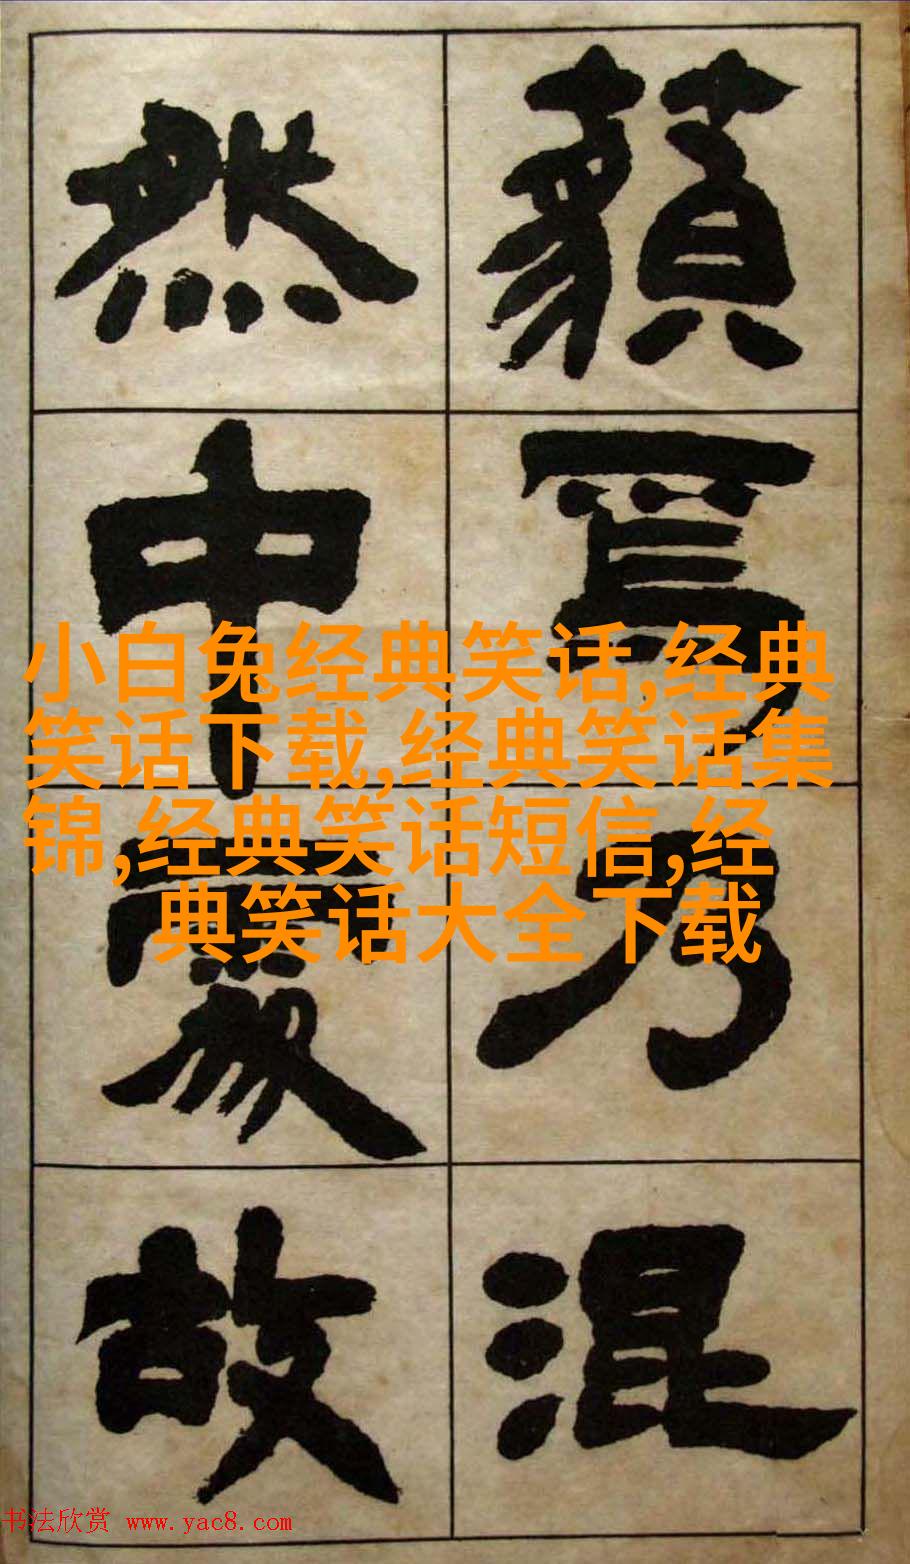 藐焉乃混
然中處故
小白兔经典笑话,经典
笑话下载,经典笑话集
锦,经典笑话短信,经
典笑话大全下载
书法欣赏 www.yac8.com